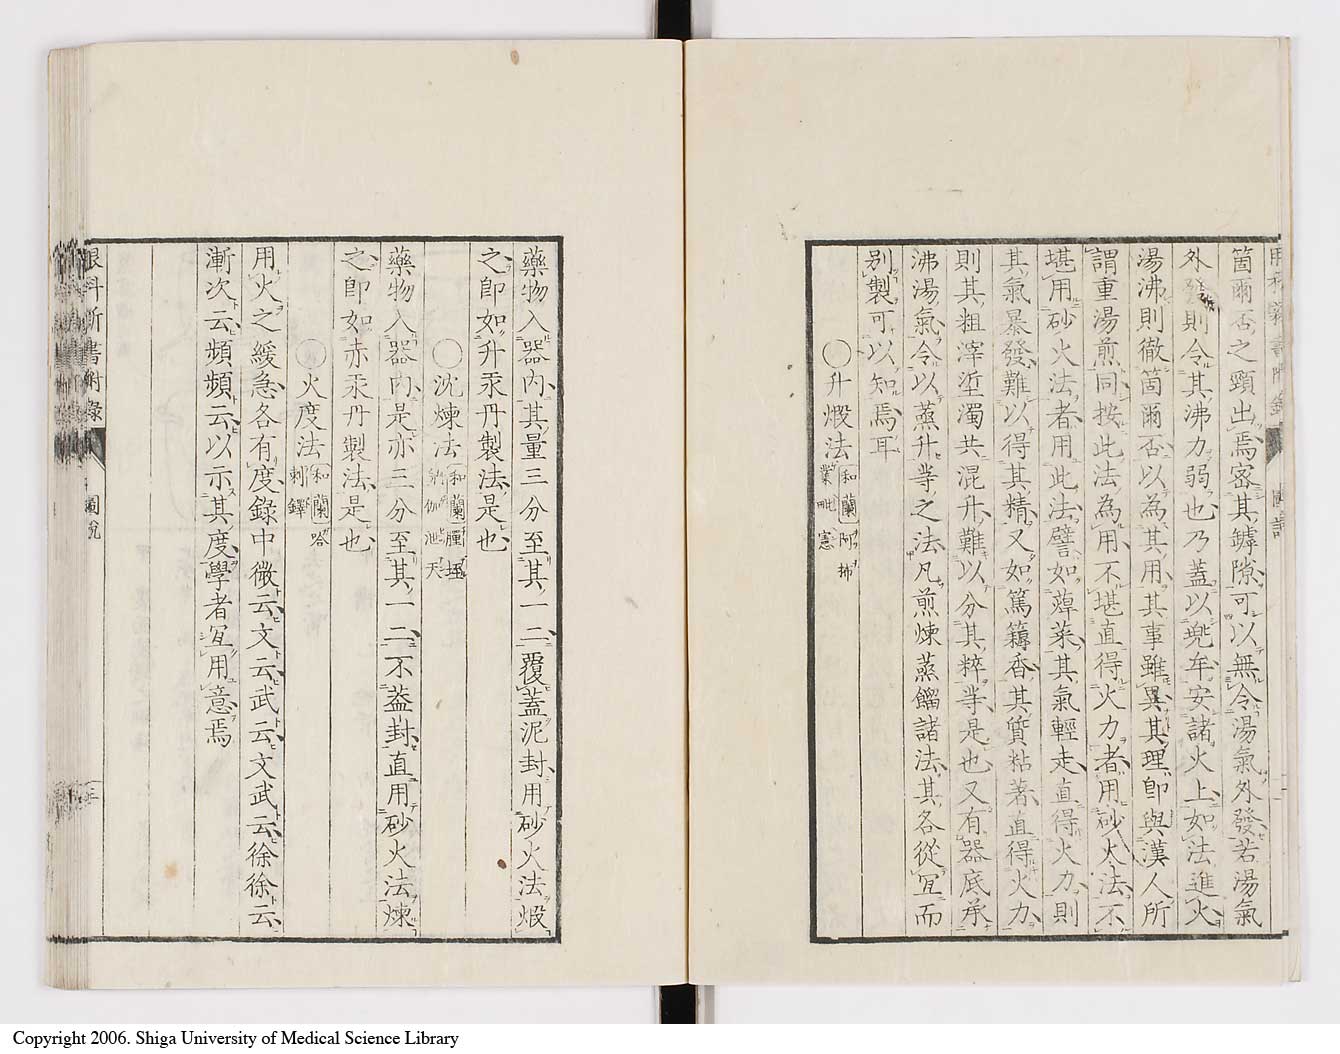 箇爾否之頸出焉密其罅隙可以無令湯氣外發若湯氣
外發則令其沸力弱也乃蓋以兠牟安諸火上如法進火
湯沸則徹箇爾否以為其用其事雖異其理即與漢人所
謂重湯煎同按此法為用不堪直得火力者用砂火法不
堪用砂火法者用此法譬如蔊菜其氣輕走直得火力則
其氣暴發難以得其精又如篤耨香其質粘著直得火力
則其粗滓垽濁共混升難以分其粹等是也又有器底承
沸湯氣令以蒸升等之法凡煎煉蒸餾諸法其各從冝而
別製可以知焉耳
○升煅法
和蘭阿
藥物入器內其量三分至其一二覆蓋泥封用砂火法煅
之即如升汞丹製法是也
○沈煉法
和蘭
藥物入器內是亦三分至其一二不蓋封直用砂火法煉
之即如赤汞丹製法是也
○火度法
和蘭哈
刺鐸
用火之緩急各有度錄中微云文云武云文武云徐徐云
漸次云頻頻云以示其度學者冝用意焉
眼科新書附錄
圖說
Copyright 2006. Shiga University of Medical Science Library